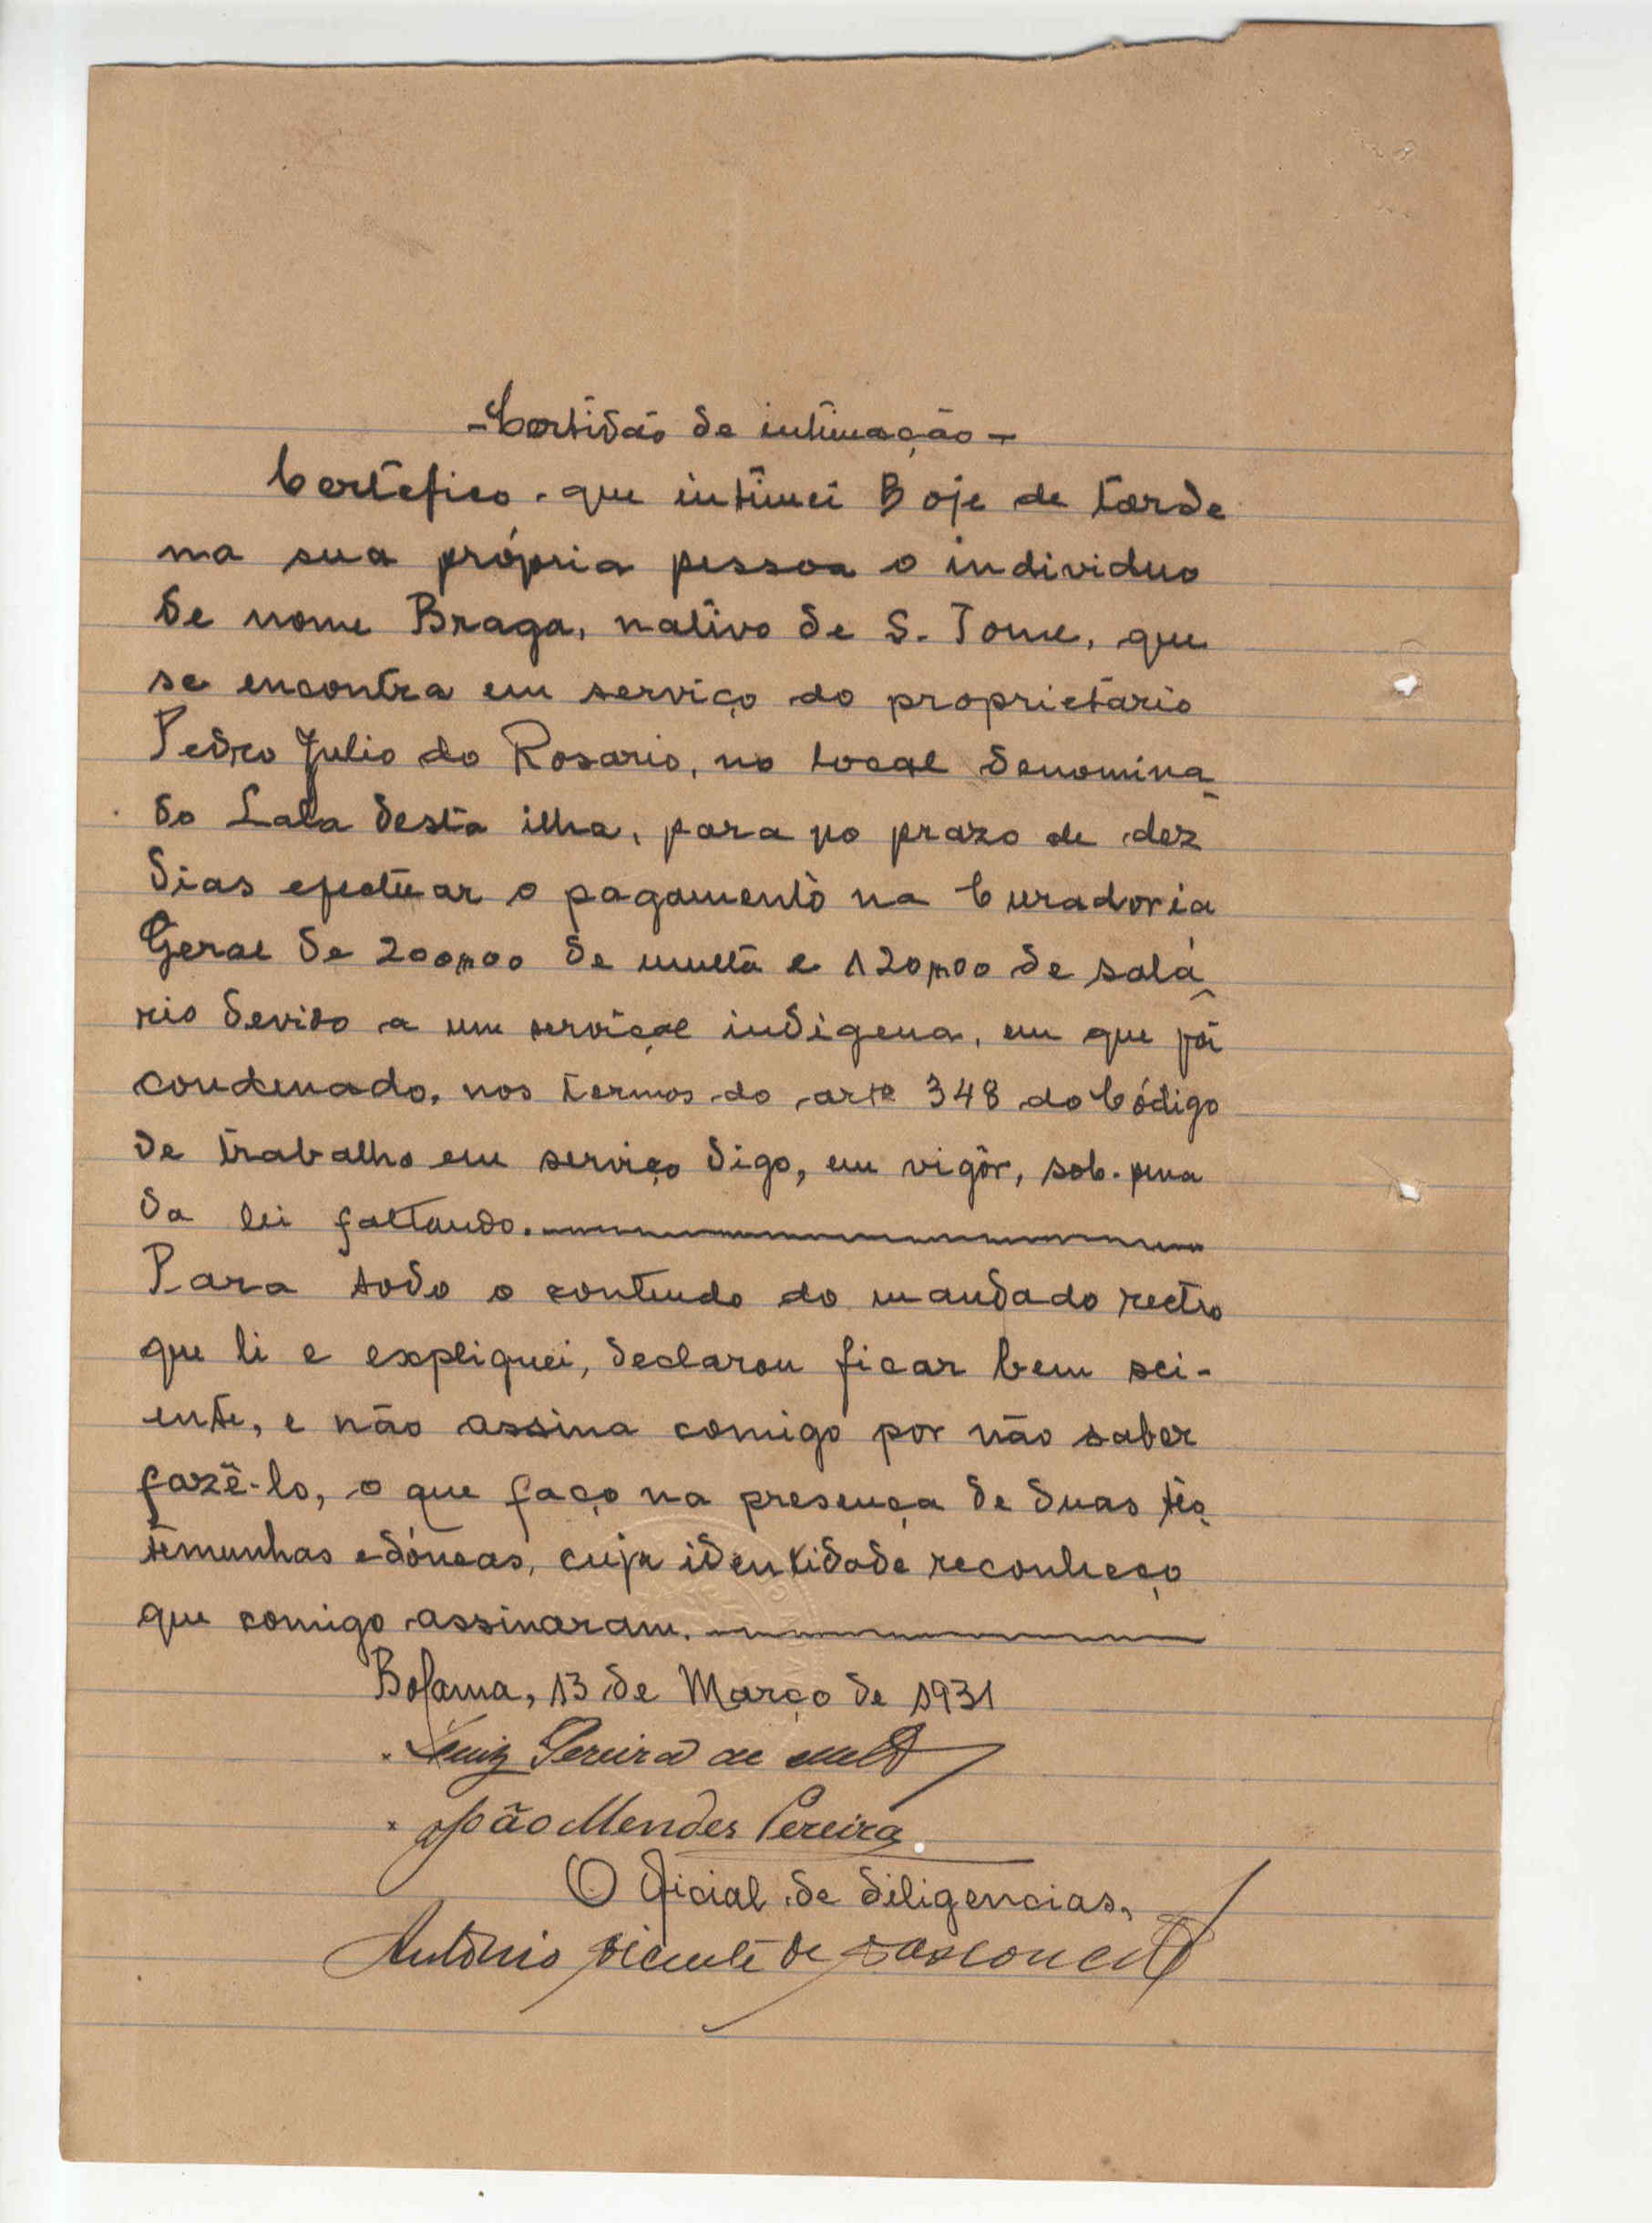 -Certidão de intimação-
Certefico que intimei hoje de tarde
na sua própria pessoa o individuo
de nome Braga, nativo de S. Tome, que
se encontra em serviço do proprietário
Pedro Julio do Rosario, no local denomina-
do Lala desta ilha, para no prazo de dez
dias efectuar o pagamento na Curadoria
Geral de 200$00 de multa e 120$00 de salá-
rio devido a um serviçal indigena, em que foi
condenado, nos termos do artº 348 do Código
de trabalho em serviço digo, em vigôr, sob pena
da lei faltando.
Para todo o contendo do mandado rectro
que li e expliquei, declarou ficar bem sci-
ente, e não assina comigo por não saber
fazê-lo, o que faço na presença de duas tes-
temunhas edóneas, cuja identidade reconheço
que comigo assinaram.
Bolama, 13 de Março de 1931
Luiz Pereira de Melo
João Mendes Pereira.
O Oficial de diligencias,
António Vicente de Vasconcelos